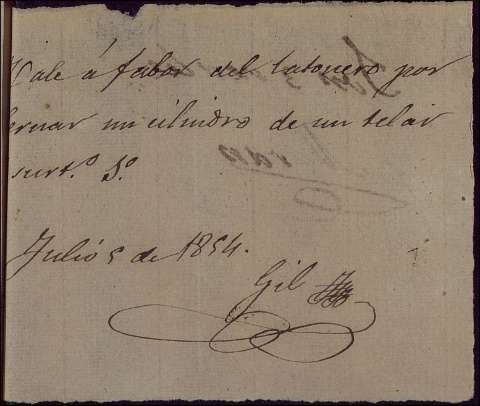 Vale á fabor del latonero por
ernar un cilindro de un telar
surt.º S.º
Julió 5 de 1854.
Gil